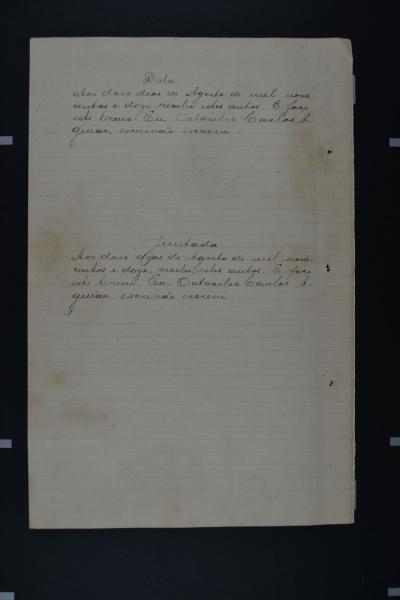 Data
Aos dois dias de Agosto de mil nove
centos e doze, recebi estes autos. E faço
este termo. Eu, Octasilio Carlos A
guiar, escrivão escrevi.
Juntada
Aos dois dias de Agosto de mil nove
centos e doze, recebi estes autos. E faço
este termo. Eu, Octasilio Carlos A-
guiar, escrivão escrevi